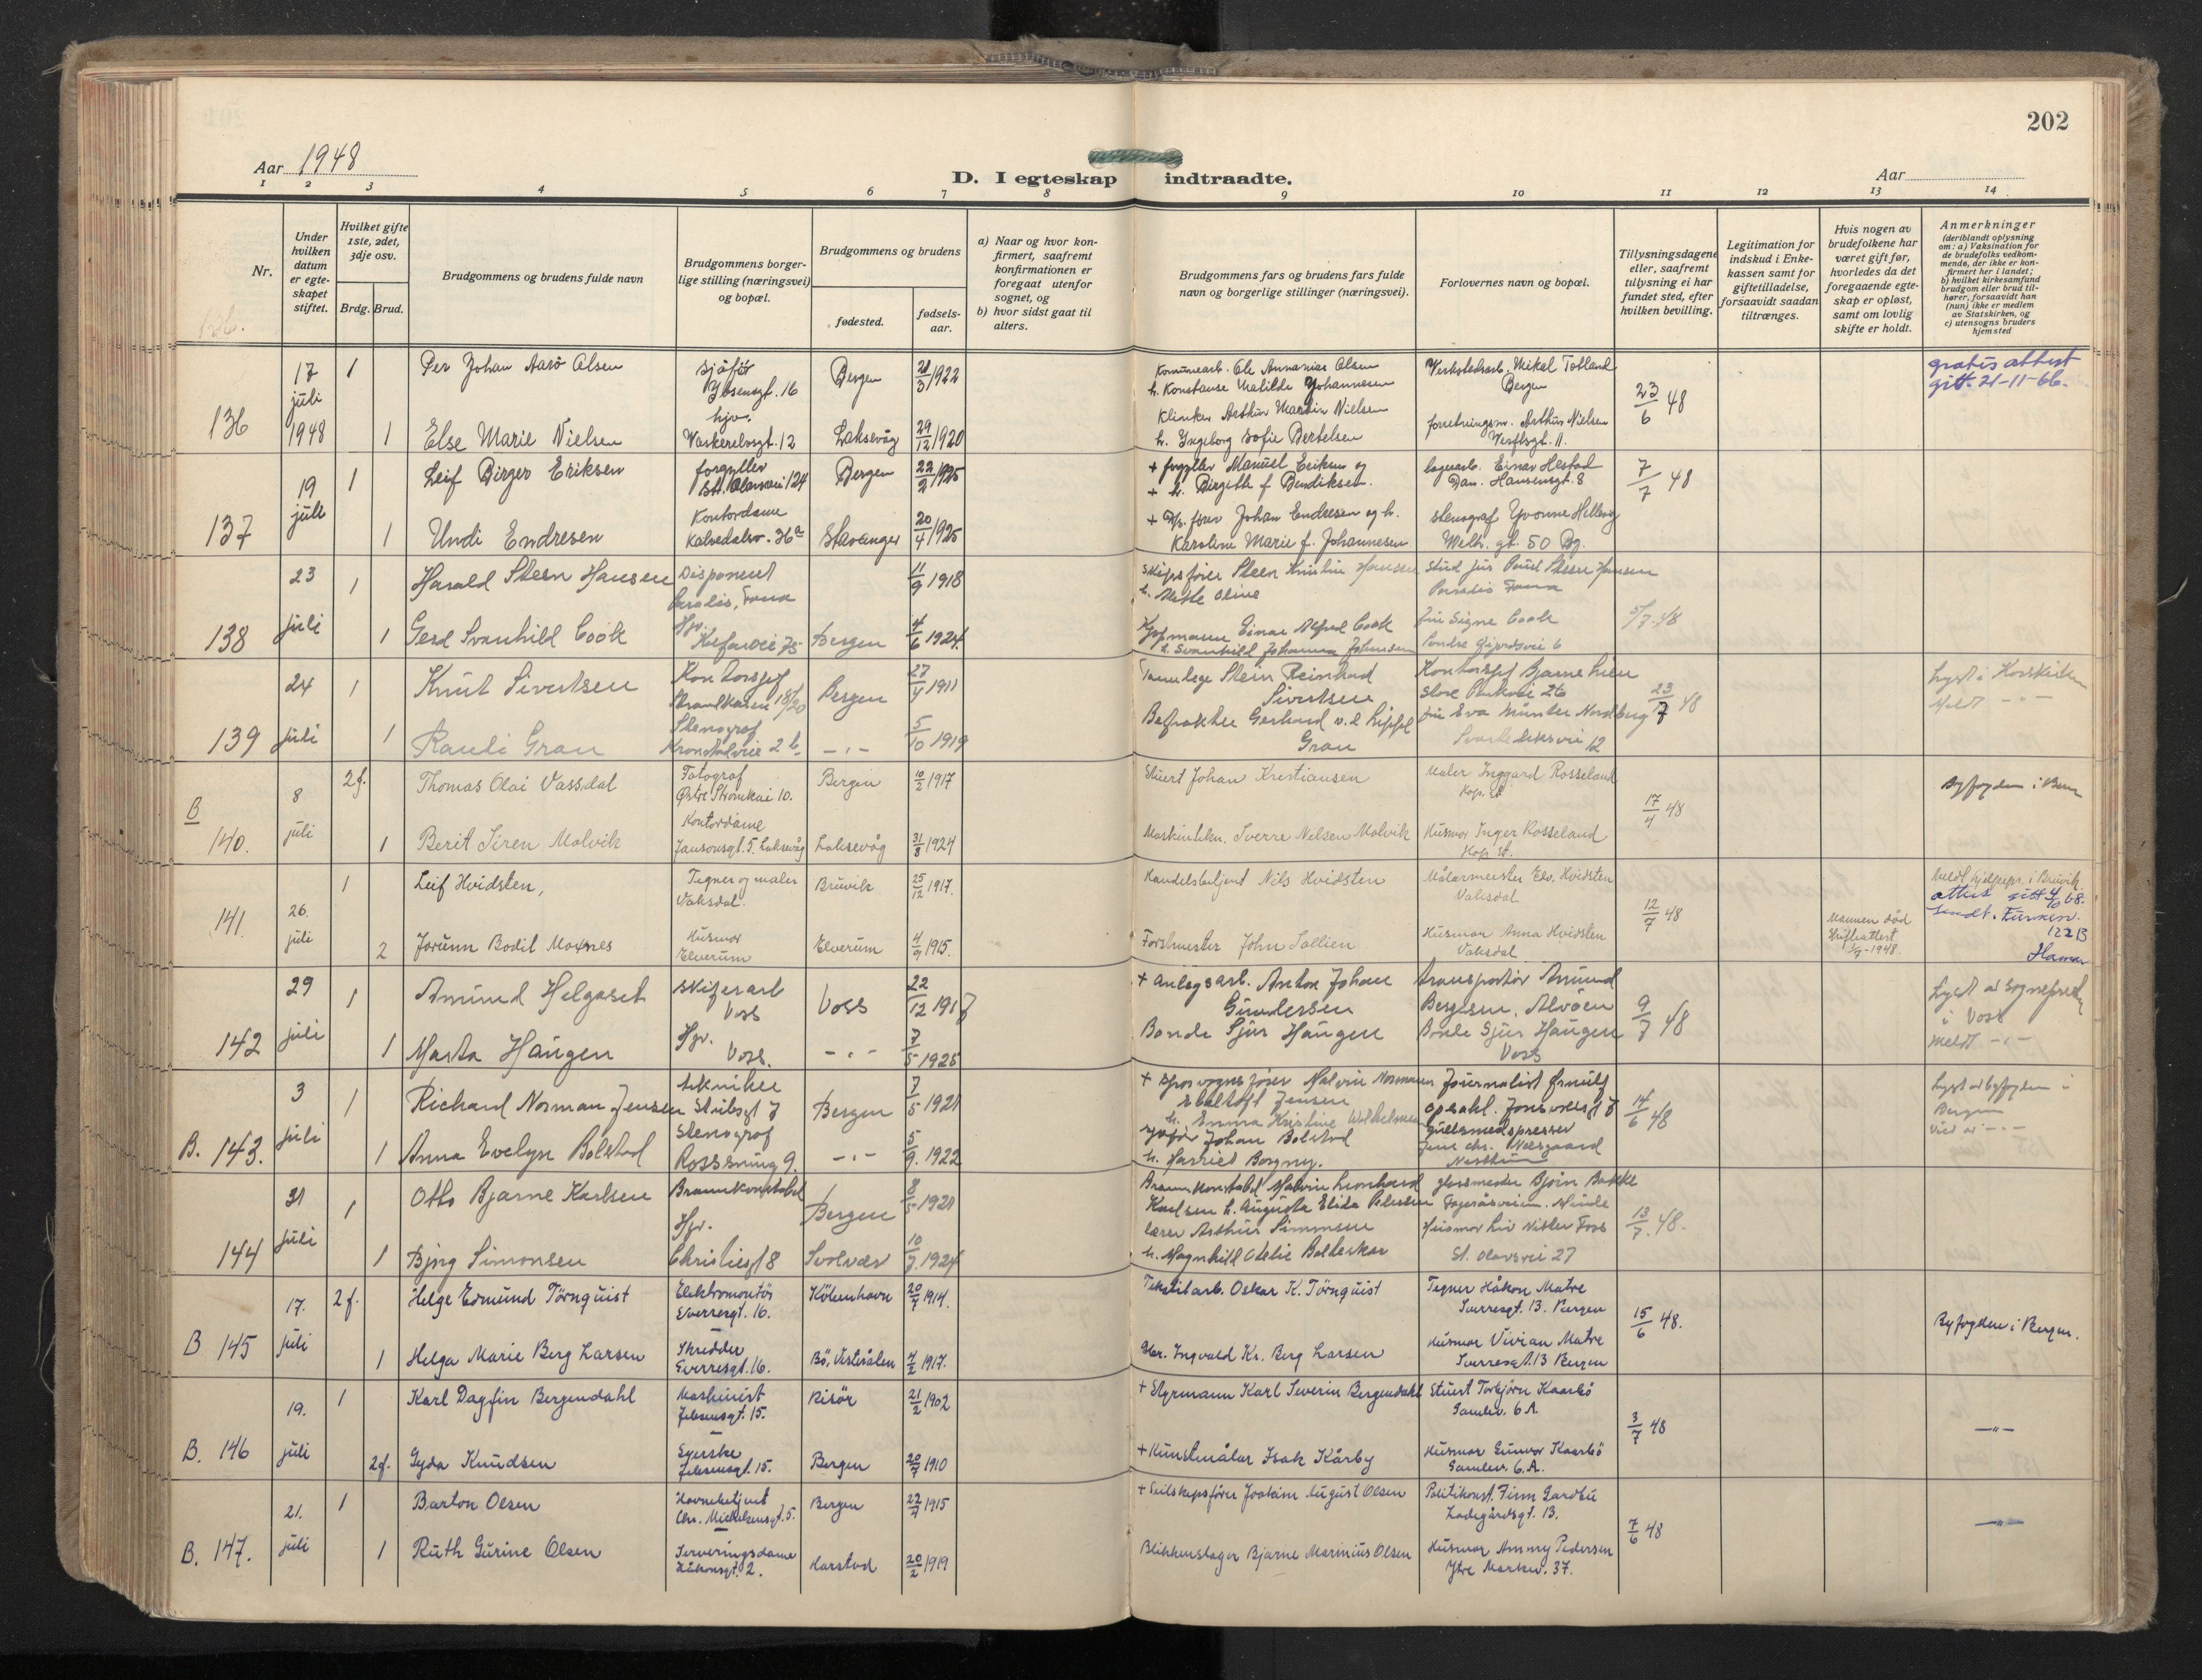 202
Aar 1948
D. I egteskap indtraadte.
Aar
1 2 3 4 5 6 7 8 9 10 11 12 13 14
Nr.
Under hvilken datum er egteskapet stiftet.
Hvilket gifte 1ste, 2det, 3dje osv.
Brdg. Brud.
Brudgommens og brudens fulde navn
Brudgommens borgerlige stilling (næringsvei) og bopæl.
Brudgommens og brudens
fødested.
fødselsaar.
a) Naar og hvor konfirmert, saafremt konfirmationen er foregaat utenfor sognet, og
b) hvor sidst gaat til alters.
Brudgommens fars og brudens fars fulde navn og borgerlige stillinger (næringsvei).
Forlovernes navn og bopæl.
Tillysningsdagene eller, saafremt tillysning ei har fundet sted, efter hvilken bevilling.
Legitimation for indskud i Enkekassen samt for giftetilladelse, forsaavidt saadan tiltrænges.
Hvis nogen av brudefolkene har været gift før, hvorledes da det foregaaende egteskap er opløst, samt om lovlig skifte er holdt.
Anmerkninger
(deriblandt oplysning om: a) Vaksination for de brudefolks vedkommende, der ikke er konfirmert her i landet; b) hvilket kirkesamfund brudgom eller brud tilhører, forsaavidt han (hun) ikke er medlem av Statskirken, og c) utensogns bruders hjemsted
136
17 juli 1948
1 Per Johan Aarö Olsen
sjåför
Ibsensgt. 16
Bergen
21/3 1922
Ole Annanias Olsen
h. Konstanse Matilde Johannesen
Mikal Totland
Bergen
23/6 48
gratis attest
gitt. 21-11-66.
1 Else Marie Nielsen
hjv.
12
Laksevåg
29/12 1920
Klinker Arthur Martin Nielsen
h. Ingeborg Sofie Bertelsen
Arthur Nielsen
Verftsgt. 11.
137
19 juli
1 Leif Birger Eriksen
forgyller
St. Olavsvei 124
Bergen
22/2 1925
+ forgyller Manuel Eriksen og
+ h. Birgith f. Bendiksen.
lagerarb. Einar Hestad
Dan. Hansensgt. 8
7/7 48
1 Undi Endresen
Kontordame
Kalvedalsv. 36a
Stavanger
20/4 1925
Johan Endresen og h.
Karoline Marie f. Johannesen
stenograf Yvonne Hellevig
Welh. gt. 50 Bg.
138
23 juli
1 Harald Steen Hansen
Disponent
Paradis, Fana
11/9 1918
Skipsfører Steen Kristian Hansen
h. Mette Oline
stud jur Poul Steen Hansen
Paradis Fana
5/7 48
1 Gerd Svanhild Cook
Hjv.
75
Bergen
4/6 1924
Kjøpmann Einar Alfred Cook
h. Svanhild Johanna Johnsen
fru Signe Cook
6
139
24 juli
1 Knut Sivertsen
Kontorsjef
Strandkaien 18/20
Bergen
27/4 1911
Tannlege Stein Reinhard
Sivertsen
Kontorsjef Bjarne Lien
Store Parkvei 26
23/7 48
Lyst i Korskirken
Meldt - " -
1 Randi Gran
Stenograf
Kronstadveie 2 b
- " -
5/10 1919
Befrakter Gerhard v. d. Lippe
Gran
fru Eva Münter Nordberg
12
B 140.
8 juli
2 f. Thomas Olai Vassdal
Fotograf
Østre Strømkai 10.
Bergen
10/2 1917
Stuert Johan Kristiansen
Maler Inggard Rosseland
Hop. st.
17/4 48
Byfogden i Bergen
1 Berit Siren Malvik
Kontordame
Jansonsgt. 5. Laksevåg
Laksevåg
31/8 1924
Maskintekn. Sverre Nelsen Malvik
Husmor Inger Rosseland
Hop. st.
141.
26. juli
1 Leif Hvidsten,
Tegner og maler
Vaksdal.
Bruvik
25/12 1917.
Handelsbetjent Nils Hvidsten
Målarmeister Edv. Hvidsten
Vaksdal
12/7 48
Meldt sjelpepr. i Bruvik.
attest gitt 4/10 68.
1223
Hamar
2 Jorunn Bodil Moxnes
Husmor
Elverum
Elverum
4/9 1915.
Forstmester John Sollien
Husmor Anna Hvidsten
Vaksdal
Mannen död
Skifteattest
1/7-1948.
142
29 juli
1 Amund Helgaset
skiferarb
Voss
Voss
22/12 1917
+ anlegsarb. Anton Johan
Gundersen
transportör Amund
Bergesen, Alvöen
9/7 48
Lyst av sogneprest
i Voss
Meldt - " -
1 Marta Haugen
Hjv.
Voss.
- " -
7/5 1925
Bonde Sjur Haugen
Bonde Sjur Haugen
Voss
B. 143.
3 juli
1 Richard Norman Jensen
tekniker
Bergen
7/5 1921
+ sporvognsfører Malvin Normann
Jensen
h. Emma Kristine
Journalist Ørnulf
Opsahl.
14/6 48
Lyst av byfogden i
Bergen
Viet av - " -
1 Anna Evelyn Bolstad
Stenograf
9.
- " -
5/9. 1922
sjåför Johan Bolstad
h. Harriet Borgny.
gullsmedspresser
144
31 juli
1 Otto Bjarne Karlsen
Brannkonstabel
Bergen
8/5 1921
Brannkonstabel Malvin Leonhard
Karlsen h. Augusta Elida Petersen
glassmester Bjørn Bakke
Fageråsveien. Minde
13/7. 48.
1 Bjørg Simonsen
Hjv.
Christiesgt 8
Svolvær
10/7. 1924
lærer Arthur Simonsen
h. Magnhild Otelie
Husmor Liv Foss
St. Olavsvei 27
B 145
17. juli
2 f. Helge Edmund Törnquist
Elektromontör
Sverresgt. 16.
Köbenhavn
20/7 1914.
Tekstilarb. Oskar K. Törnquist
Tegner Håkon Matre
Sverresgt. 13. Bergen
15/6 48.
Byfogden i Bergen.
1 Helga Marie Berg Larsen
Skredder
Sverresgt. 16.
Bö, Vesterålen
4/2 1917.
Ingvald Kr. Berg Larsen
Husmor Vivian Matre
Sverresgt. 13 Bergen
B. 146
19. juli
1 Karl Dagfin Bergendahl
Maskinist
Ibsensgt. 15.
Risör
21/2 1902
+ Styrmann Karl Severin Bergendahl
Stuert Torbjörn Kaarbö
Gamlev. 6 A.
3/7 48
- " -
2 f. Gyda Knudsen
Syerske
Ibsensgt. 15.
Bergen
20/7 1910
+ Kunstmåler Isak Kårby
Husmor Gunvor Kaarbö
Gamlev. 6. A.
B. 147.
21. juli
1 Barton Olsen
Havnebetjent
Chr. Michelsensgt. 5.
Bergen
22/7 1915
+ Seilskipsfører Joakim August Olsen
Politikonst. Finn Gardbu
Ladegårdsgt. 13.
7/6 48
- " -
1 Ruth Gurine Olsen
Serveringsdame
Håkonsgt. 2.
Harstad
20/2 1919
Blikkenslager Bjarne Marinius Olsen
Husmor Ammy Pedersen
Ytre Markev. 37.